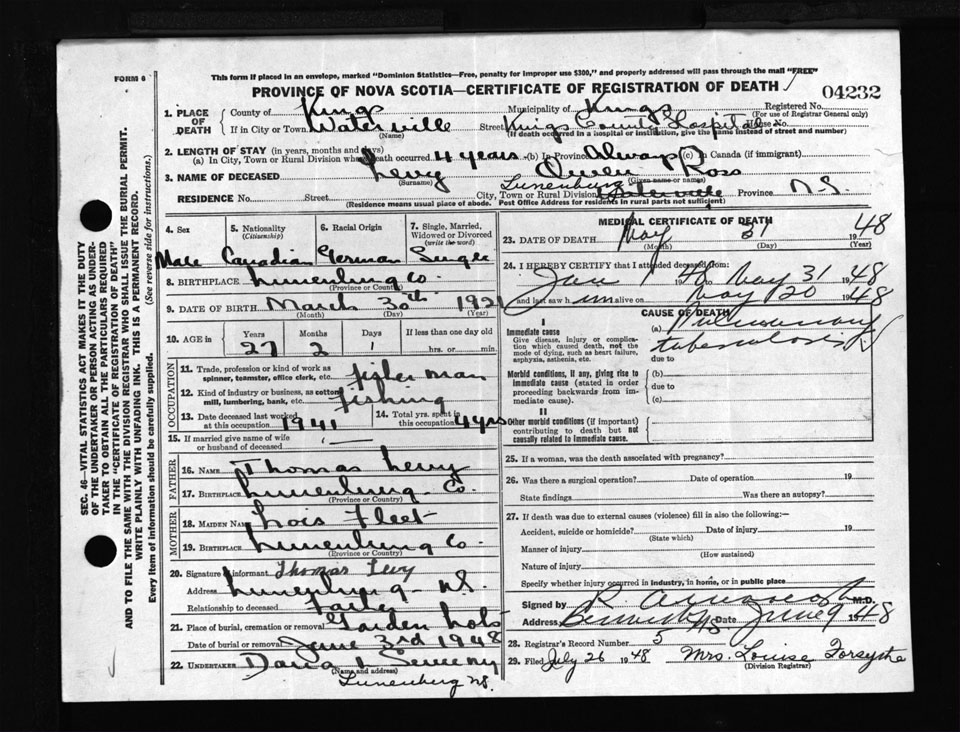 FORM 6
This form if placed in an envelope, marked "Dominion Statistics—Free, penalty for improper use $300," and properly addressed will pass through the mail "FREE"
PROVINCE OF NOVA SCOTIA—CERTIFICATE OF REGISTRATION OF DEATH
04232
SEC. 46—VITAL STATISTICS ACT MAKES IT THE DUTY
OF THE UNDERTAKER OR PERSON ACTING AS UNDER-
TAKER TO OBTAIN ALL THE PARTICULARS REQUIRED
IN THE "CERTIFICATE OF REGISTRATION OF DEATH"
AND TO FILE THE SAME WITH THE DIVISION REGISTRAR WHO SHALL ISSUE THE BURIAL PERMIT.
WRITE PLAINLY WITH UNFADING INK. THIS IS A PERMANENT RECORD.
Every item of information should be carefully supplied. (See reverse side for instructions.)
1. PLACE OF DEATH County of Kings Municipality of Kings Registered No.
(For use of Registrar General only)
If in City or Town Waterville Street Kings County Hospital House No.
(Name) (If death occurred in a hospital or institution, give the name instead of street and number)
2. LENGTH OF STAY (in years, months and days)
(a) In City, Town or Rural Division where death occurred 4 years (b) In Province Always (c) In Canada (if immigrant)
3. NAME OF DECEASED Levy Owen Ross
(Surname) (Given name or names)
RESIDENCE No. Street City, Town or Rural Division Lunenburg Waterville Province N.S.
(Residence means usual place of abode. Post Office Address for residents in rural parts not sufficient)
4. Sex 5. Nationality (Citizenship) 6. Racial Origin 7. Single, Married, Widowed or Divorced (write the word)
Male Canadian German Single
8. BIRTHPLACE Lunenburg Co.
(Province or County)
9. DATE OF BIRTH March 30th 1921
(Month) (Day) (Year)
10. AGE Years Months Days If less than one day old
27 2 1 hrs. or min.
OCCUPATION
11. Trade, profession or kind of work as spinner, teamster, office clerk, etc. fisherman
12. Kind of industry or business, as cotton mill, lumbering, bank, etc. fishing
13. Date deceased last worked at this occupation 1941 14. Total yrs. spent in this occupation 4 yrs
15. If married give name of wife or husband of deceased —
FATHER
16. NAME Thomas Levy
17. BIRTHPLACE Lunenburg Co.
(Province or Country)
MOTHER
18. MAIDEN NAME Lois Fleet
19. BIRTHPLACE Lunenburg Co.
(Province or Country)
20. Signature of informant Thomas Levy
Address Lunenburg N.S.
Relationship to deceased Father
21. Place of burial, cremation or removal Garden Lots
Date of burial or removal June 3rd 1948
22. UNDERTAKER Sweeny
(Name and address)
Lunenburg N.S.
MEDICAL CERTIFICATE OF DEATH
23. DATE OF DEATH May 31 1948
(Month) (Day) (Year)
24. I HEREBY CERTIFY that I attended deceased from:
Jan 1 to May 31 1948
and last saw him alive on May 20 1948
CAUSE OF DEATH
I
Immediate cause
Give disease, injury or complication which caused death, not the mode of dying, such as heart failure, asphyxia, asthenia, etc.
(a) Pulmonary tuberculosis
due to
Morbid conditions, if any, giving rise to immediate cause (stated in order proceeding backwards from immediate cause).
(b)
due to
(c)
II
Other morbid conditions (if important) contributing to death but not causally related to immediate cause.
25. If a woman, was the death associated with pregnancy?
26. Was there a surgical operation? Date of operation 19
State findings Was there an autopsy?
27. If death was due to external causes (violence) fill in also the following:—
Accident, suicide or homicide? Date of injury 19
(State which)
Manner of injury
(How sustained)
Nature of injury
Specify whether injury occurred in industry, in home, or in public place
Signed by M.D.
Address Berwick NS Date June 9 1948
28. Registrar's Record Number 5
29. Filed July 26 1948 Mrs. Louise Forsythe
(Division Registrar)